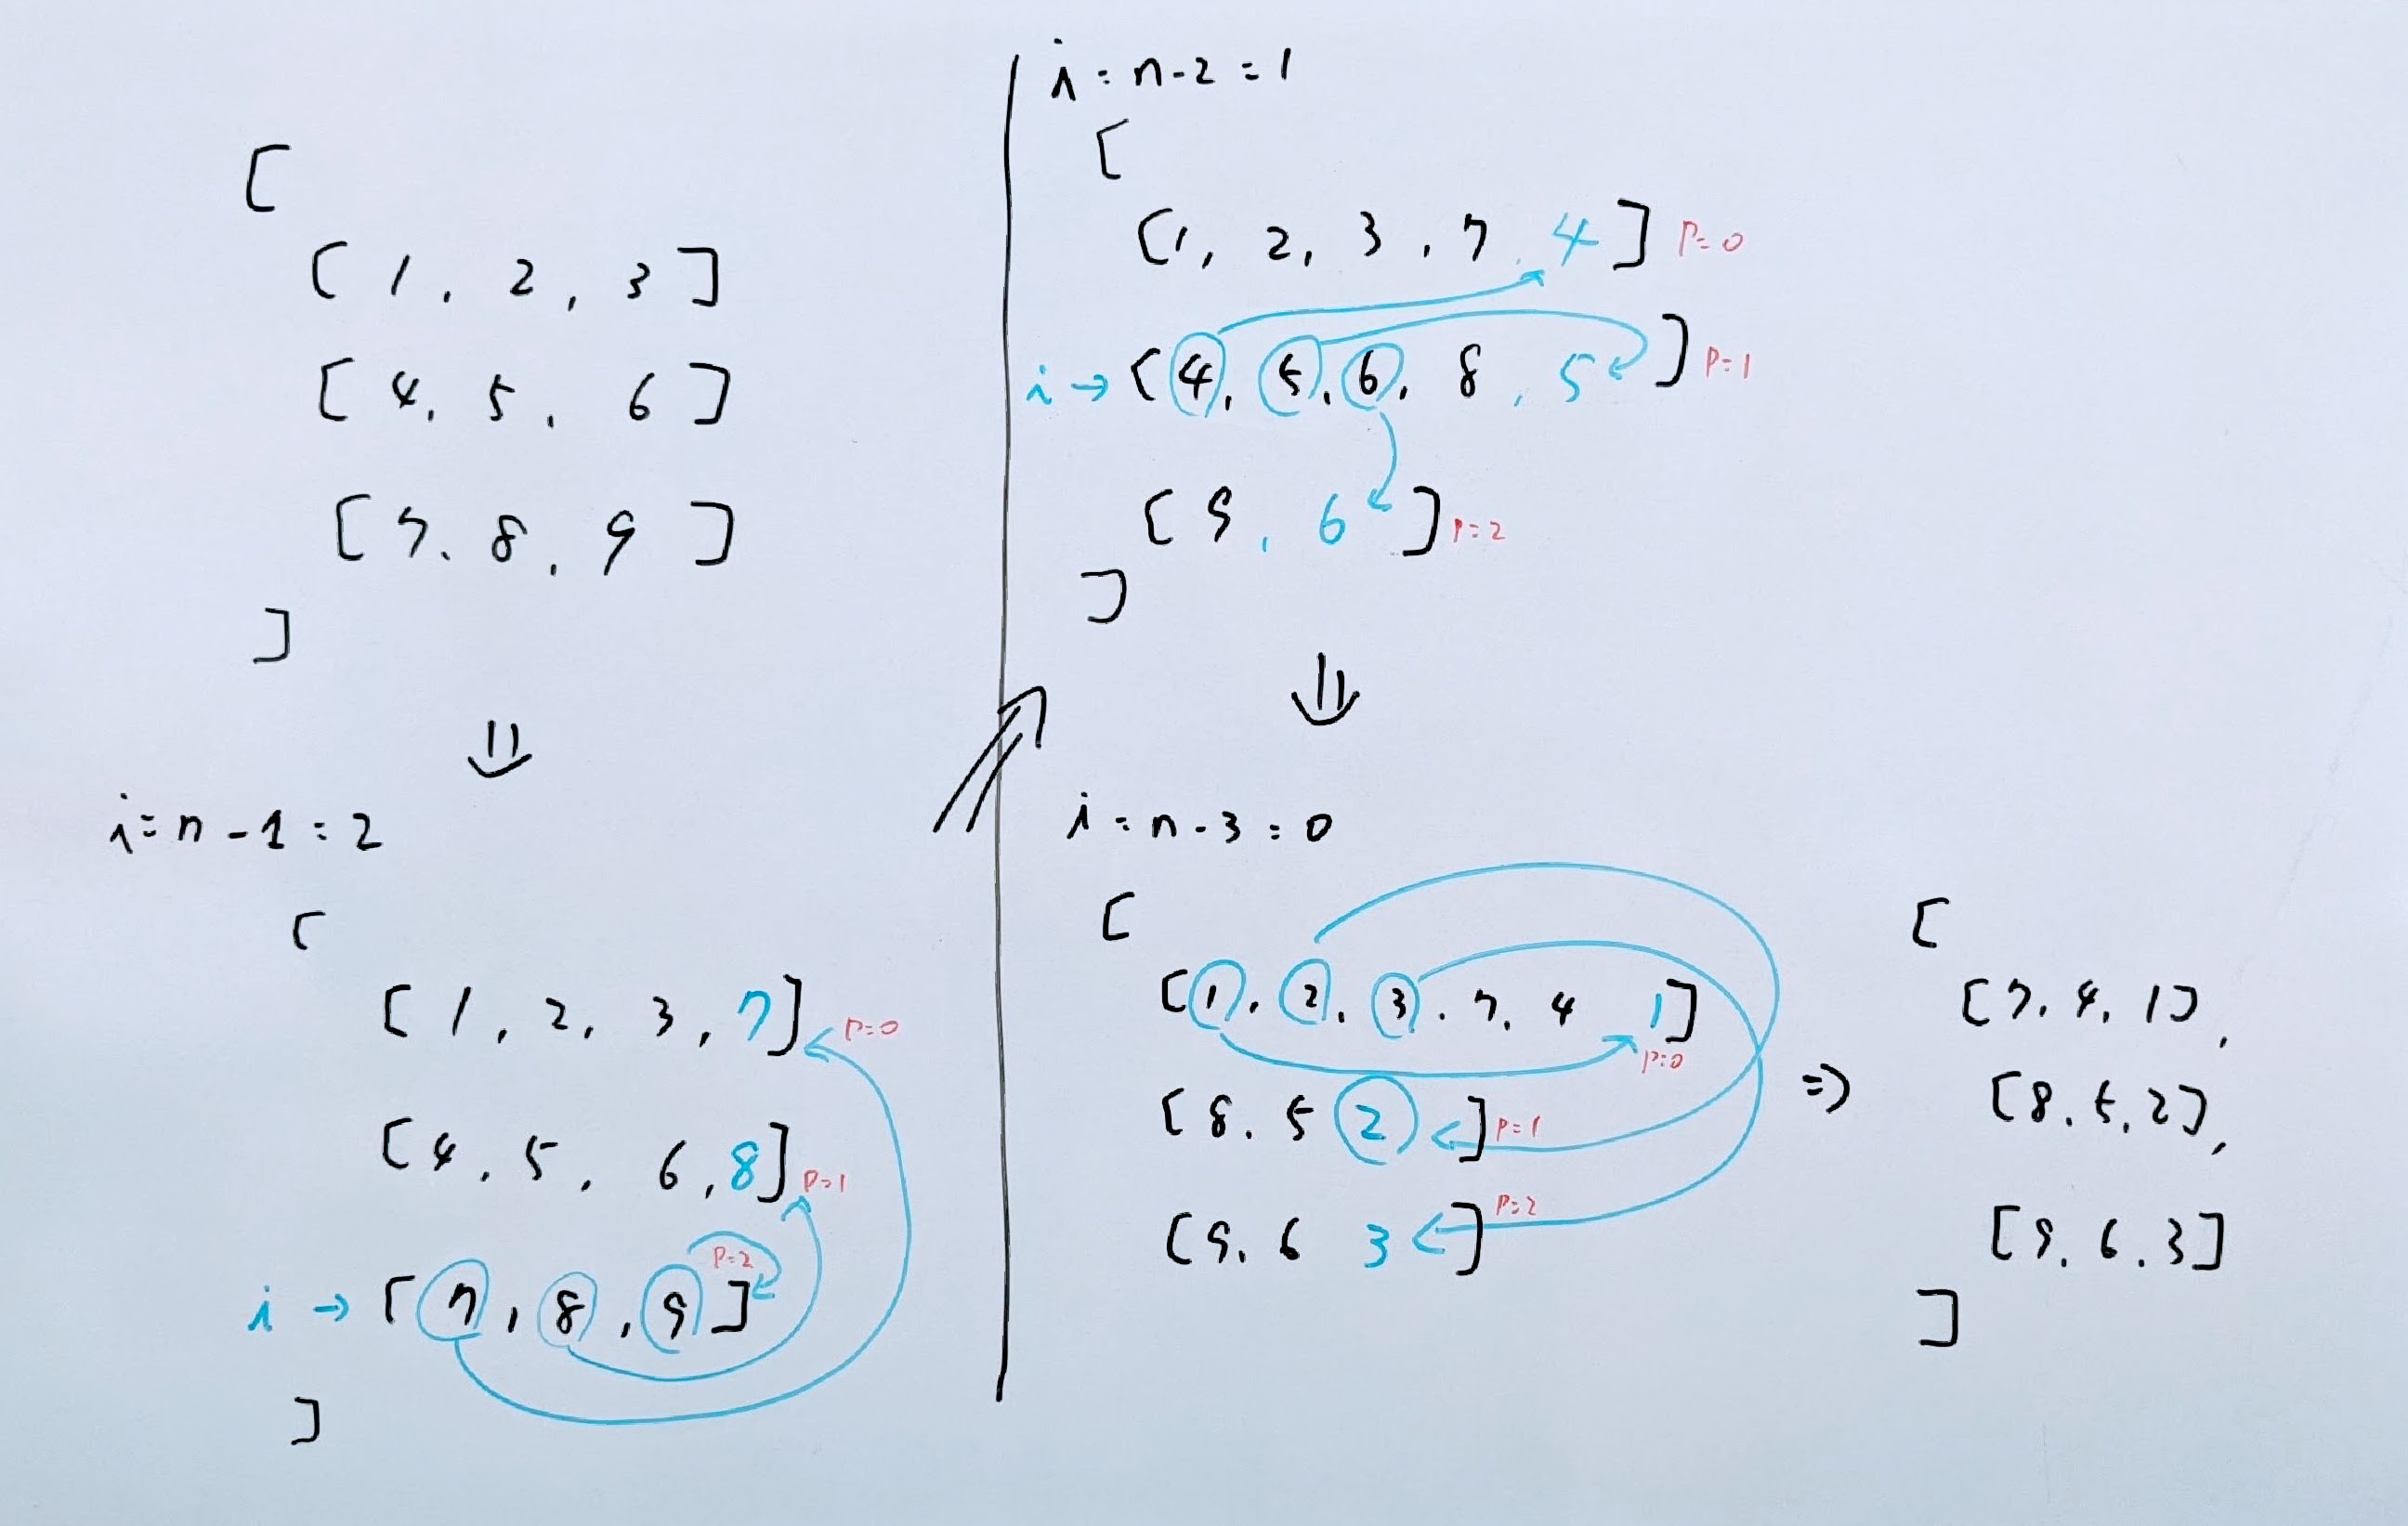 [
[ 1 , 2 , 3 ]
[ 4 , 5 , 6 ]
[ 7 , 8 , 9 ]
]
⇓
i = n - 1 = 2
[
[ 1 , 2 , 3 , 7 ] p=0
[ 4 , 5 , 6 , 8 ] p=1
p=2
i → [ 7 , 8 , 9 ]
]
i = n - 2 = 1
[
[ 1 , 2 , 3 , 7 , 4 ] p=0
i → [ 4 , 5 , 6 , 8 , 5 ] p=1
[ 9 , 6 ] p=2
]
⇓
i = n - 3 = 0
[
[ 1 , 2 , 3 , 7 , 4 1 ]
p=0
[ 8 , 5 2 ] p=1
[ 9 , 6 3 ] p=2
⇒
[
[ 7 , 4 , 1 ] ,
[ 8 , 5 , 2 ] ,
[ 9 , 6 , 3 ]
]